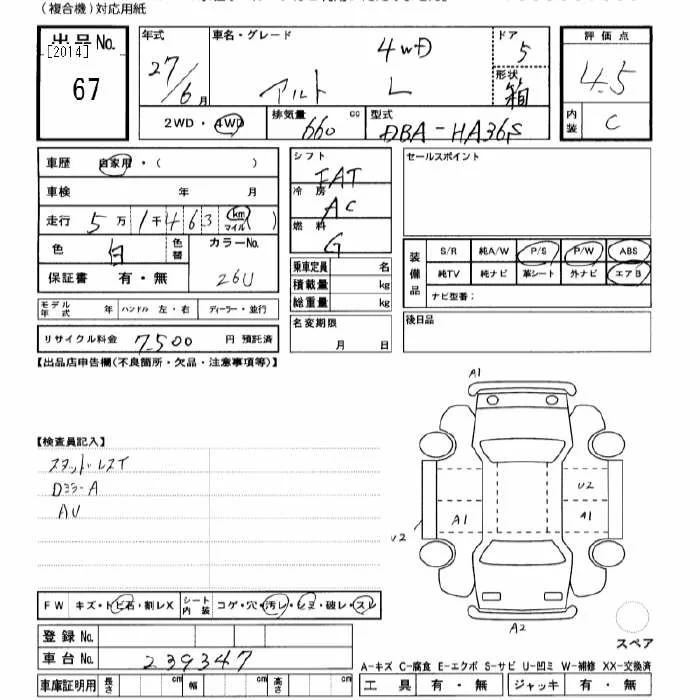 (複合機)対応用紙
出品No.
[2014]
67
年式
27/6月
車名・グレード
4WD
アルト L
ドア
5
形状
箱
評価点
4.5
内装
C
2WD・4WD
排気量
660 cc
型式
DBA-HA36S
車歴 自家用・( )
車検 年 月
走行 5万1千463 km マイル ( )
色 白 色替
カラーNo.
26U
保証書 有・無
モデル年式 年 ハンドル 左・右 ディーラー・並行
リサイクル料金 7500 円 預託済
シフト
FAT
冷房
AC
燃料
G
乗車定員 名
積載量 kg
総重量 kg
名変期限
月 日
セールスポイント
装備品
S/R 純A/W P/S P/W ABS
純TV 純ナビ 革シート 外ナビ エアB
ナビ型番:
後日品
【出品店申告欄(不良箇所・欠品・注意事項等)】
【検査員記入】
スタッドレスT
Dミラー A
AU
FW キズ・トビ石・割レX
シート内装 コゲ・穴・汚レ・シミ・破レ・スレ
登録No.
車台No. 239347
車庫証明用 長さ cm 幅 cm 高さ cm
A1
U2
A1
A1
U2
A2
スペア
A-キズ C-腐食 E-エクボ S-サビ U-凹ミ W-補修 XX-交換済
工具 有・無 ジャッキ 有・無